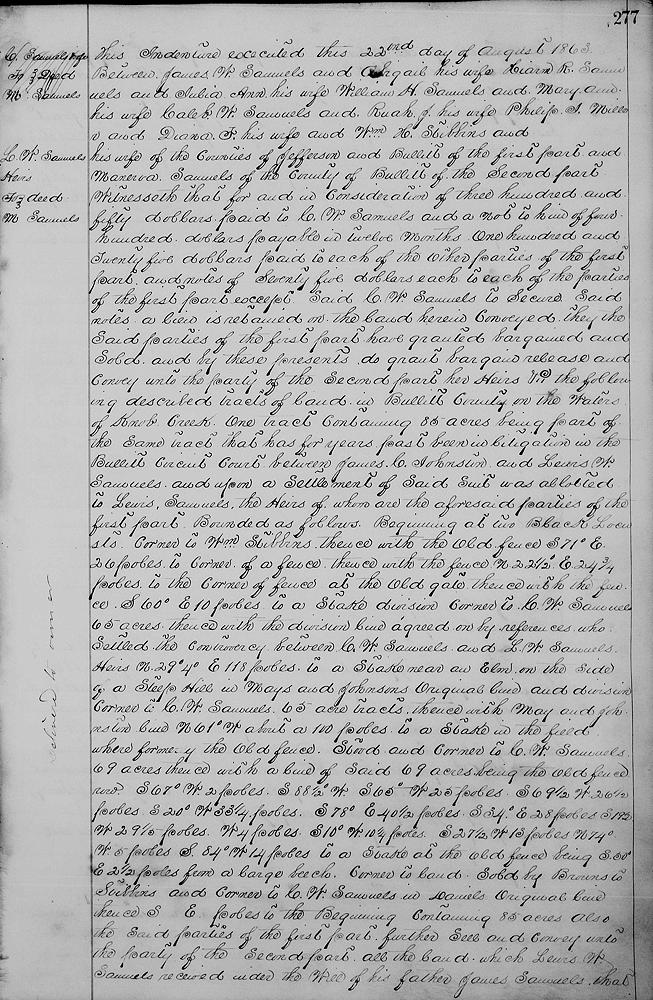 277
C. Samuels & wife
To } Deed
M Samuels
L. W. Samuels
Heirs
To } deed
M Samuels
This Indenture executed this 22nd day of August 1863
Between James W Samuels and Abigail his wife Hiram R. Samu
uels and Julia Ann his wife William H. Samuels and Mary Ann
his wife Caleb W. Samuels and Ruah J. his wife Philip S. Mille
r and Diana F. his wife and Wm H. Stibbins and
his wife of the Counties of Jefferson and Bullitt of the first part and
Manerva Samuels of the County of Bullitt of the Second part
Witnesseth that for and in Consideration of three hundred and
fifty dollars paid to C. W Samuels and a not to him of four
hundred dollars payable in twelve Months One hundred and
Twenty five dollars paid to each of the other parties of the first
part and notes of Seventy five dollars each to each of the parties
of the first part except Said C. W Samuels to Secure Said
notes a lien is retained on the land herein Conveyed they the
Said parties of the first part have granted bargained and
Sold and by these presents do grant bargain release and
Convey unto the party of the Second part her Heirs the follow
ing described tracts of land in Bullitt County on the Waters
of Knob Creek One tract Containing 85 acres being part of
the Same tract that has for years past been in litigation in the
Bullitt Circuit Court between James C. Johnston and Lewis W
Samuels and upon a Settlement of Said Suit was allotted
to Lewis Samuels the Heirs of whom are the aforesaid parties of the
first part Bounded as follows Beginning at two Black Locu
sts Corner to Wm Stibbins thence with the Old fence S 71° E
26 poles to Corner of a fence thence with the fence N 22½° E 24¾
poles to the Corner of fence at the Old gate thence with the fen
ce S 60° E 10 poles to a Stake division Corner to C. W Samuels
65 acres thence with the division line agreed on by references who
Settled the Controvercy between C. W Samuels and L. W Samuels
Heirs N 29° 4° E 118 poles to a Stake near an Elm on the Side
of a Steep Hill in Mays and Johnsons Original line and division
Corner to C. W Samuels 65 acre tracts thence with May and Joh
nston line N 61° W about a 100 poles to a Stake in the field
where formerly the Old fence Stood and Corner to C. W Samuels
69 acres thence with a line of Said 69 acres being the Old fence
row S 67° W 2 poles S 88½ W S 65° W 25 poles S 69½ W 26½
poles S 20° W 33¼ poles S 78° E 40½ poles S 34° E 28 poles S
W 29½ poles W 4 poles S 10° W 10¼ poles S 27½ W 13 poles N 74°
W 5 poles S. 84° W 14 poles to a Stake at the Old fence being S 50°
E 2½ poles from a large beech Corner to land Sold by Browns to
Stibbins and Corner to C. W Samuels in Daniels Original line
thence S E poles to the Beginning Containing 85 acres also
the Said parties of the first part further Sell and Convey unto
the party of the Second part all the land which Lewis W
Samuels received under the Will of his father James Samuels that
delivered to owner